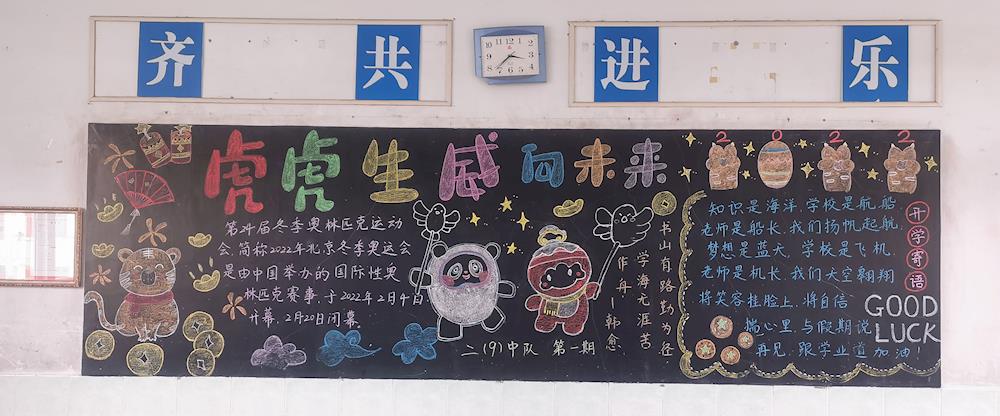 齐 共 进 乐
虎虎生威向未来
第24届冬季奥林匹克运动
会,简称2022年北京冬季奥运会
是由中国举办的国际性奥
林匹克赛事,于2022年2月4日
开幕,2月20日闭幕。
书山有路勤为径
学海无涯苦
作舟—韩愈
二(9)中队 第一期
2022
开学寄语
知识是海洋,学校是航船,
老师是船长,我们扬帆起航,
梦想是蓝天,学校是飞机,
老师是机长,我们天空翱翔
将笑容挂脸上,将自信
揣心里与假期说
再见,跟学业道加油!
GOOD
LUCK